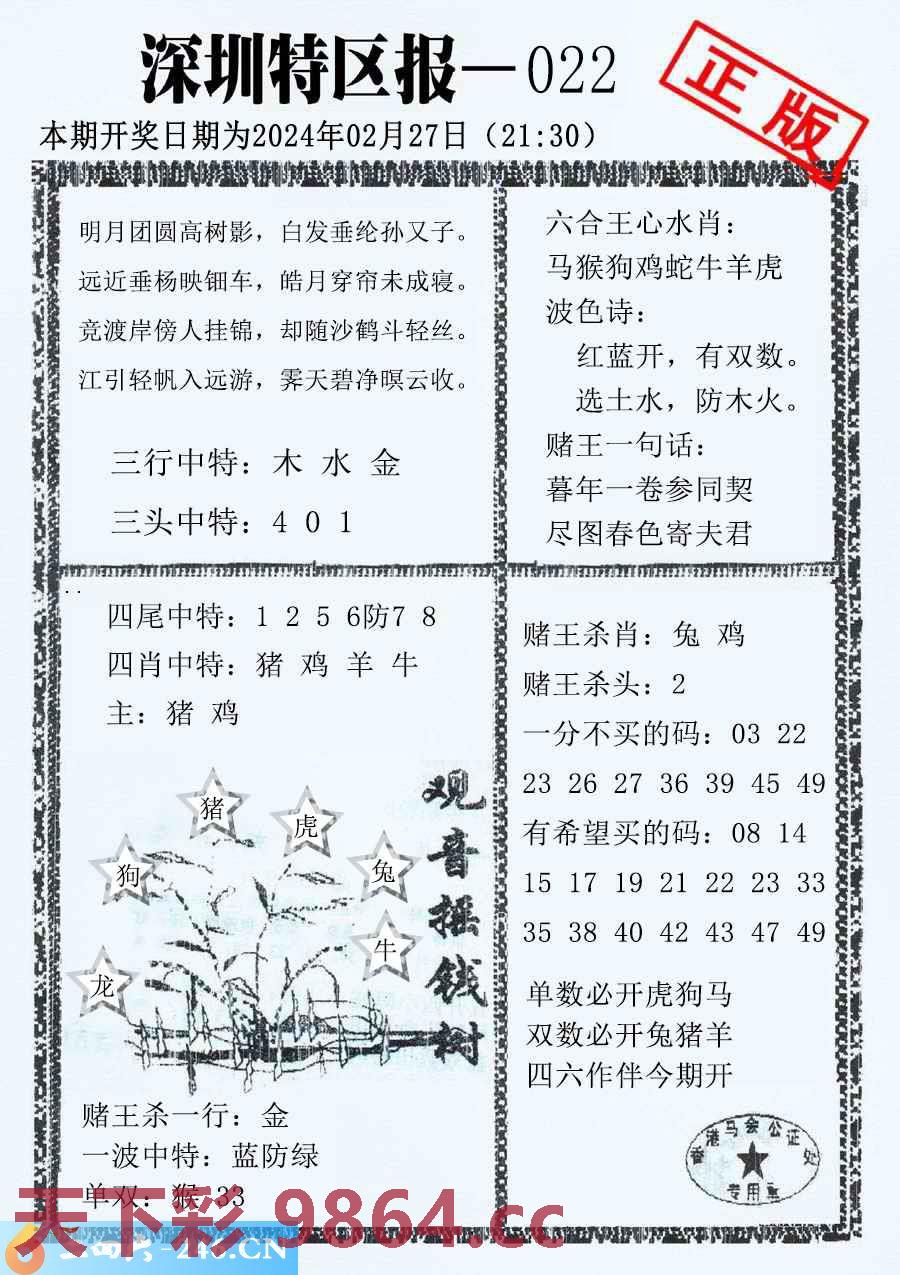 深圳特区报－022
正版
本期开奖日期为2024年02月27日（21:30）
明月团圆高树影，白发垂纶孙又子。
远近垂杨映钿车，皓月穿帘未成寝。
竞渡岸傍人挂锦，却随沙鹤斗轻丝。
江引轻帆入远游，霁天碧净暝云收。
三行中特：木 水 金
三头中特：4 0 1
六合王心水肖：
马猴狗鸡蛇牛羊虎
波色诗：
红蓝开，有双数。
选土水，防木火。
赌王一句话：
暮年一卷参同契
尽图春色寄夫君
四尾中特：1 2 5 6防7 8
四肖中特：猪 鸡 羊 牛
主：猪 鸡
猪
虎
狗
兔
牛
龙
观音摇钱树
赌王杀一行：金
一波中特：蓝防绿
单双：猴 33
赌王杀肖：兔 鸡
赌王杀头：2
一分不买的码：03 22
23 26 27 36 39 45 49
有希望买的码：08 14
15 17 19 21 22 23 33
35 38 40 42 43 47 49
单数必开虎狗马
双数必开兔猪羊
四六作伴今期开
香港马会公证处
专用章
天下彩 9864.cc